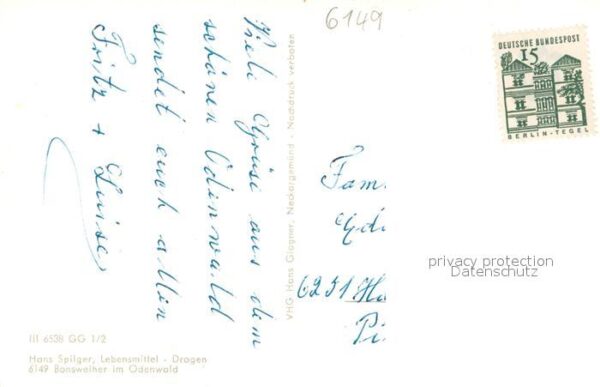 6149
DEUTSCHE BUNDESPOST
15
BERLIN-TEGEL
Viele Grüße aus dem
schönen Odenwald
sendet euch allen
Fritz + Luise
VHG Hans Glogner, Neckargemünd - Nachdruck verboten
Fam.
6251
privacy protection
Datenschutz
III 6538 GG 1/2
Hans Spilger, Lebensmittel - Drogen
6149 Bonsweiher im Odenwald